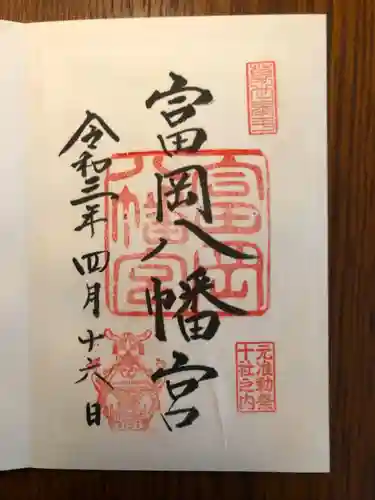 富岡八幡宮
富岡
八幡宮
元准勅祭
十社之内
令和三年 四月 十六日